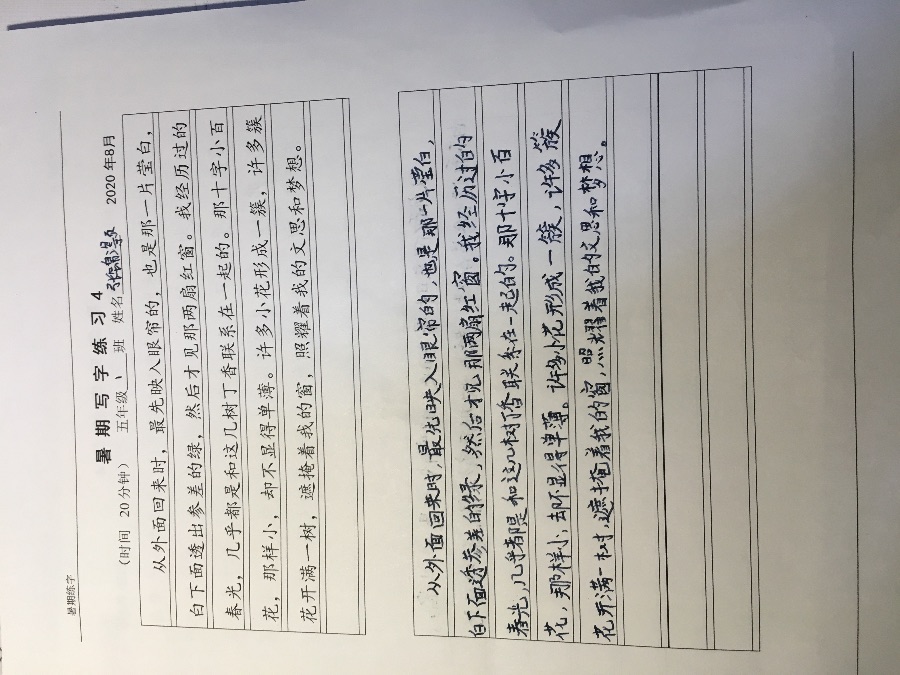 暑期练字
暑 期 写 字 练 习 4
(时间 20分钟) 五年级 1 班 姓名 2020年8月
从外面回来时，最先映入眼帘的，也是那一片莹白，
白下面透出参差的绿，然后才见那两扇红窗。我经历过的
春光，几乎都是和这几树丁香联系在一起的。那十字小百
花，那样小，却不显得单薄。许多小花形成一簇，许多簇
花开满一树，遮掩着我的窗，照耀着我的文思和梦想。
从外面回来时,最先映入眼帘的,也是那一片莹白,
白下面透参差的绿,然后才见那两扇红窗。我经历过的
春光,几乎都是和这几树丁香联系在一起的。那十字小百
花,那样小,却不显得单薄。许多小花形成一簇,许多簇
花开满一树,遮掩着我的窗,照耀着我的文思和梦想。